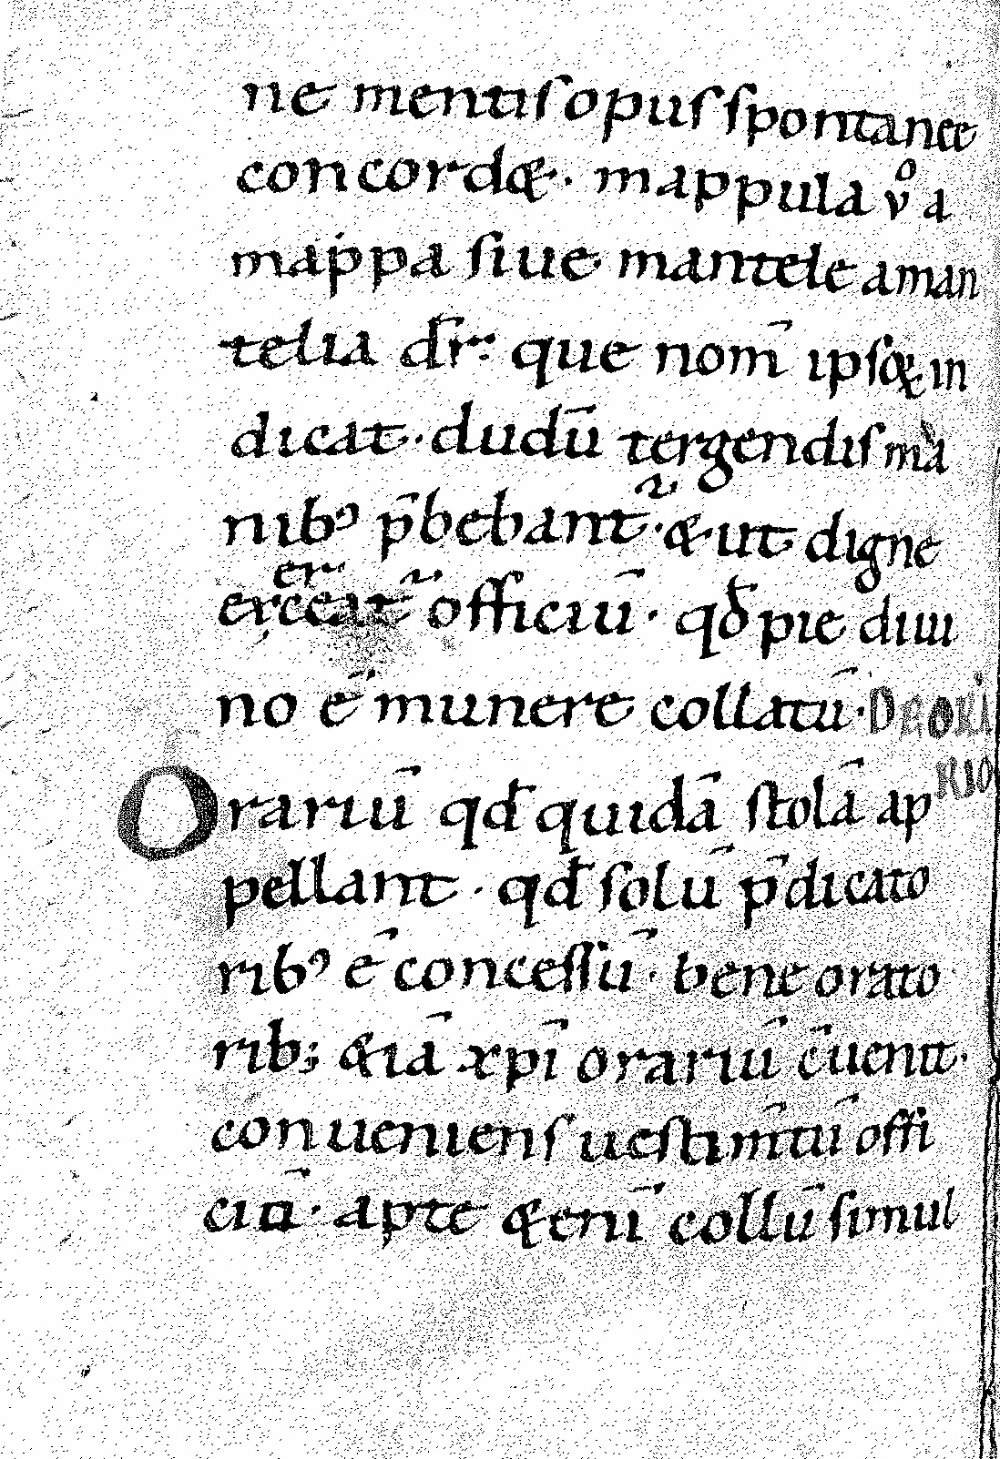 ne mentis opus spontanee
concordæ · mappula v̊ a
mappa siue mantele a man
telia dr̄ : que nom̄ ipsoꝝ in
dicat · dudū tergendis ma
nibꝰ p̄bebant᷑ · & ut digne
exerceat᷑ officiū · qđ pie diui
no ē munere collatū · DE ORA
RIO
Orariū qđ quidā stolā ap
pellant · qđ solū p̄dicato
ribꝰ ē concessū · bene orato
ribꝫ &iā xp̄i orariū c̄uenit ·
conueniens uestim̄tū offi
ciū · apte &enī collū simul